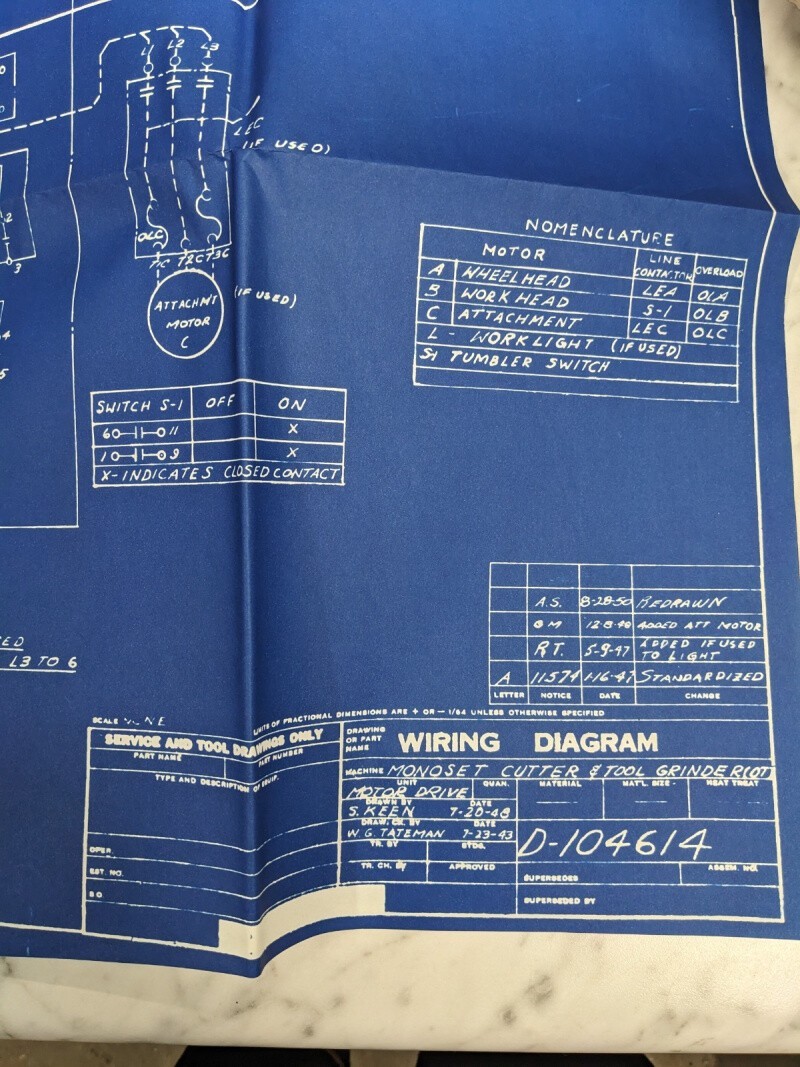 L1 L2 L3
LEC
(IF USED)
2
3
OLC
T1C T2C T3C
ATTACHM'T
MOTOR
C
(IF USED)
4
5
NOMENCLATURE
MOTOR LINE CONTACTOR OVERLOAD
A WHEELHEAD LEA OLA
B WORK HEAD S-1 OLB
C ATTACHMENT LEC OLC
L - WORKLIGHT (IF USED)
S-1 TUMBLER SWITCH
SWITCH S-1 OFF ON
6 11 X
1 9 X
X-INDICATES CLOSED CONTACT
L3 TO 6
A.S. 8-28-50 REDRAWN
12-8-48 ADDED ATT MOTOR
R.T. 5-9-47 ADDED IF USED TO LIGHT
A 11574 1-16-47 STANDARDIZED
LETTER NOTICE DATE CHANGE
SCALE
LIMITS OF FRACTIONAL DIMENSIONS ARE + OR - 1/64 UNLESS OTHERWISE SPECIFIED
SERVICE AND TOOL DRAWINGS ONLY
PART NAME PART NUMBER
TYPE AND DESCRIPTION OF EQUIP.
OPER.
EST. NO.
S O
DRAWING OR PART NAME WIRING DIAGRAM
MACHINE MONOSET CUTTER & TOOL GRINDER (OT)
UNIT QUAN. MATERIAL MAT'L. SIZE HEAT TREAT
MOTOR DRIVE
DRAWN BY DATE
S. KEEN 7-20-43
DRAW. CK. BY DATE
W. G. TATEMAN 7-23-43
TR. BY STDG.
TR. CH. BY APPROVED
D-104614
SUPERSEDES ASSEM. NO.
SUPERSEDED BY